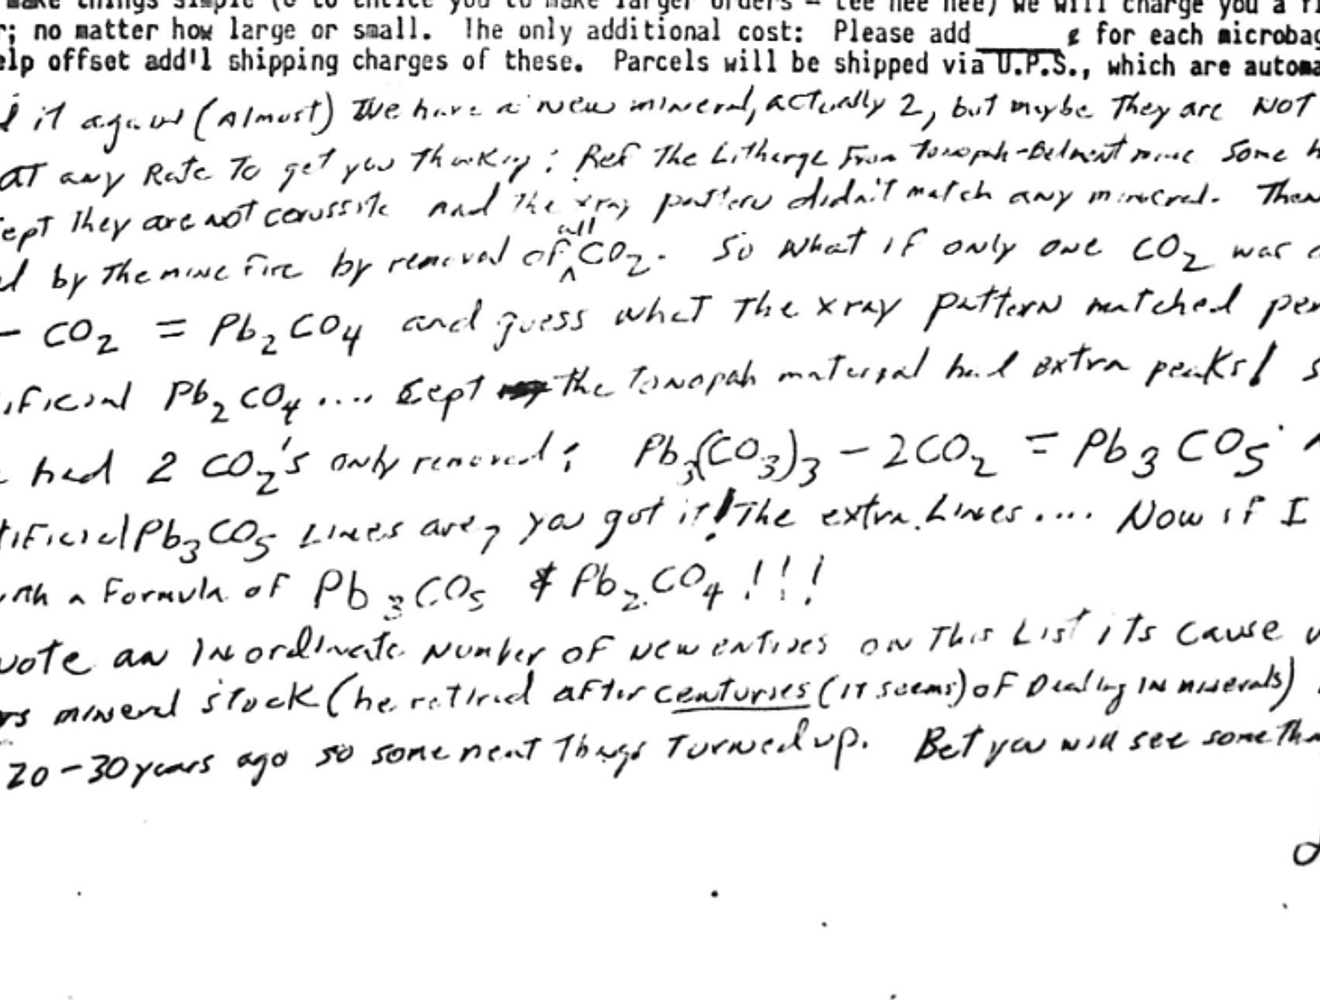 make things simple (& to entice you to make larger orders - tee hee hee) we will charge you a
; no matter how large or small. The only additional cost: Please add _____ ¢ for each microbag
elp offset add'l shipping charges of these. Parcels will be shipped via U.P.S., which are automa
it again (Almost) We have a new mineral, actually 2, but maybe They are NOT
AT any Rate To get you Thinking: Ref The Litharge From Tonopah-Belmont mine some
cept They are not cerussite and The xray pattern didn't match any mineral. Then
d by The mine Fire by removal of all CO2. So what if only one CO2 was
- CO2 = Pb2CO4 and guess what The xray pattern matched per
ificial Pb2CO4.... Cept the Tonopah material had extra peaks! S
had 2 CO2's only removed: Pb3(CO3)3 - 2CO2 = Pb3CO5
tificial Pb3CO5 Lines are, you got it! The extra Lines.... Now if I
with a Formula of Pb3CO5 & Pb2CO4!!!
note an Inordinate Number of New entries on This List its Cause
rs mineral stock (he retired after centuries (it seems) of Dealing in minerals)
20-30 years ago so some neat Things Turned up. Bet you will see someth